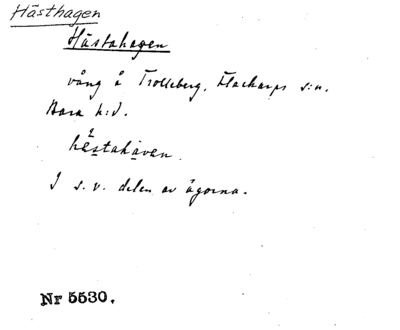 Hästhagen
Hästahagen
vång å Trolleberg, Flackarps s:n.
Bara h:d.
hästahaven.
I s. v. delen av ägorna.
Nr 5530.